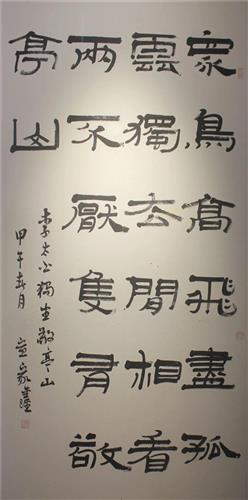 眾鳥高飛盡孤
雲獨去閒相看
兩不厭隻有敬
亭山
李太白獨坐敬亭山
甲午春月 宣家鑫